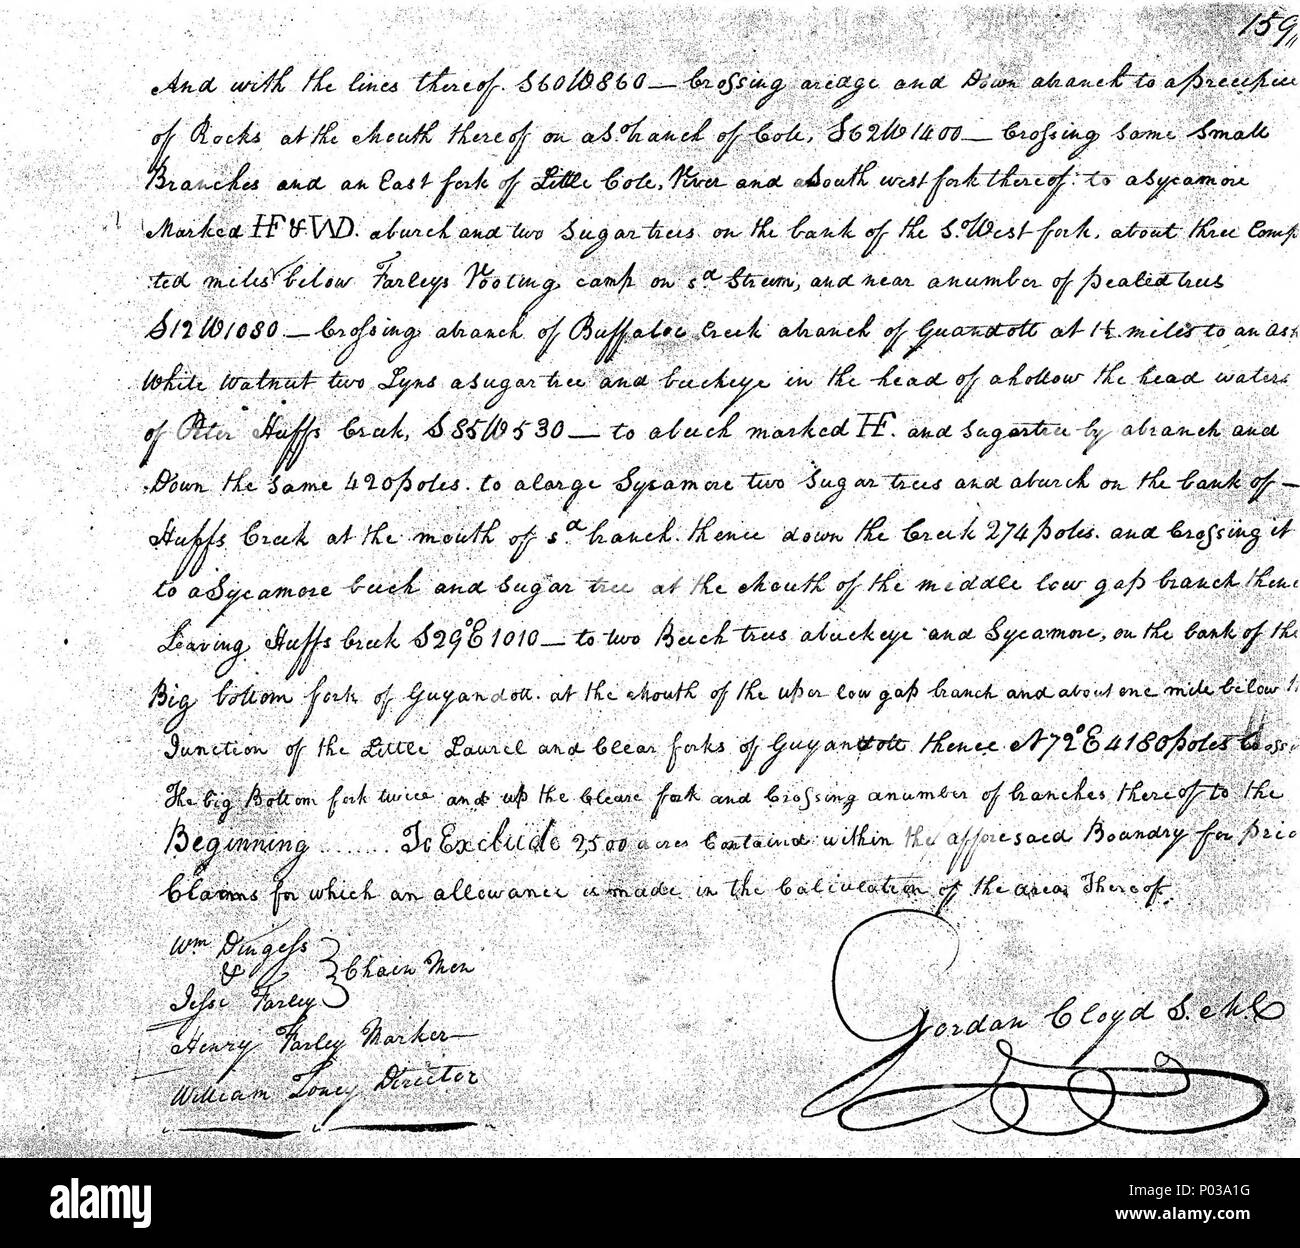 159
And with the lines thereof S60W860 — Crossing aredge and Down abranch to a
of Rocks at the Mouth thereof on a Sº branch of Cole, S62W1400 — Crossing some Small
Branches and an East fork of Little Cole, River and a South west fork thereof to a Sycamore
Marked HF & WD. aburch and two Sugartrees on the bank of the Sº West fork, about three Comp
ted miles below Farleys Rooting camp on sd Streem, and near anumber of pealed trees
S12W1080 — Crossing abranch of Buffaloe Creek abranch of Guandott at 1½ miles to an as
White Walnut two Lyns asugartree and buckeye in the head of ahollow the head waters
of Peter Huffs Creek, S85W530 — to abeech marked HF. and Sugartree by abranch and
Down the same 420 poles. to alarge Sycamore two Sugar trees and aburch on the bank of —
Huffs Creek at the mouth of sd branch. thence down the Creek 274 poles. and Crossing it
to aSycamore beech and Sugar tree at the Mouth of the middle low gap branch thenc
Leaving Huffs Creek S29ºE1010 — to two Beech trees abuckeye and Sycamore, on the bank of the
Big bottom fork of Guyandott. at the Mouth of the uper low gap branch and about one mile below
Junction of the Little Laurel and Clear forks of Guyandott thence N72ºE4180 poles Cross
The big Bottom fork twice and up the Cleare fork and Crossing anumber of branches thereof to the
Beginning ........ To Exclude 2,500 acres Containd within the afforesaed Boundry for prio
Claims for which an allowance is made in the Calculation of the area Thereof.
Wm Dingess
& } Chain Men
Jesse Farley
Henry Farley Marker
William Toney Director
Gordan Cloyd S.
a
alamy
Image ID: P03A1G
www.alamy.com